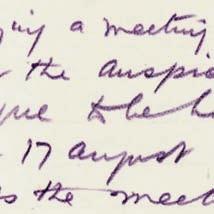 a meeting
the auspic
to be h
17 august
the meet